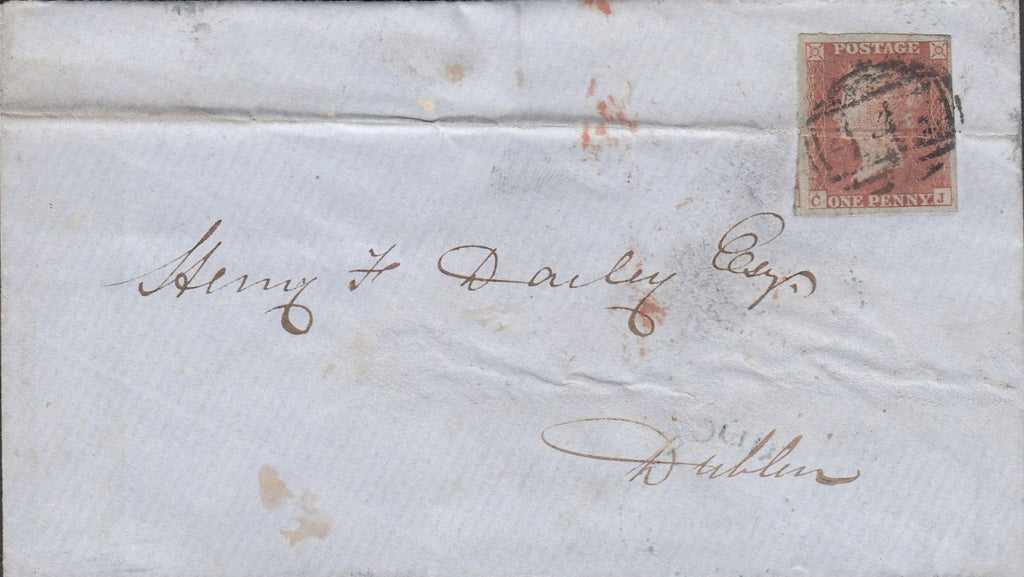 POSTAGE
C ONE PENNY J
Henry F Darley Esqr.
Dublin